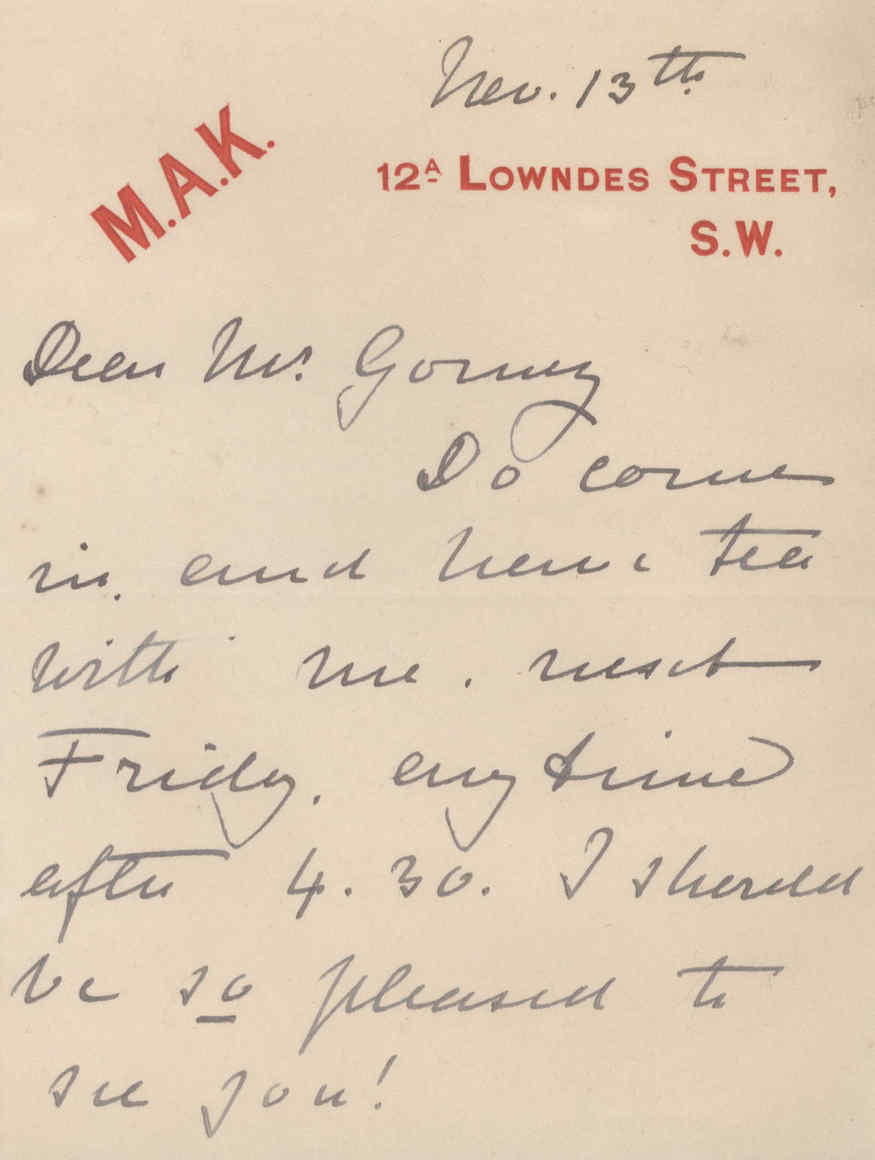 Nov. 13th
M.A.K.
12A Lowndes Street,
S.W.
Dear Mr. Gomez
Do come
in and have tea
with me. next
Friday. any time
after 4.30. I should
be so pleased to
see you!